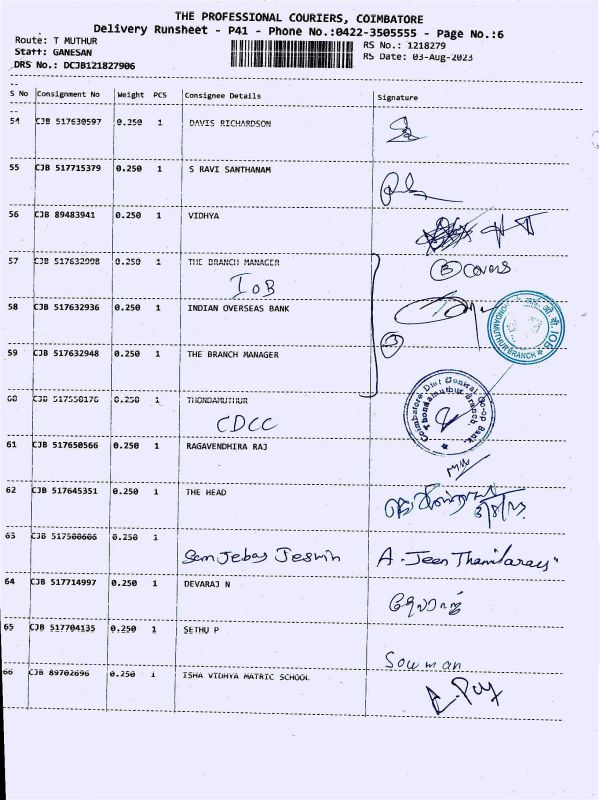 THE PROFESSIONAL COURIERS, COIMBATORE
Delivery Runsheet - P41 - Phone No.:0422-3505555 - Page No.:6
Route: T MUTHUR
RS No.: 1218279
Staff: GANESAN
RS Date: 03-Aug-2023
DRS No.: DCJB121827906
S No Consignment No Weight PCS Consignee Details Signature
54 CJB 517630597 0.250 1 DAVIS RICHARDSON
55 CJB 517715379 0.250 1 S RAVI SANTHANAM
56 CJB 89483941 0.250 1 VIDHYA
57 CJB 517632998 0.250 1 THE BRANCH MANAGER ③ covers
IOB
58 CJB 517632936 0.250 1 INDIAN OVERSEAS BANK
THONDAMUTHUR BRANCH
59 CJB 517632948 0.250 1 THE BRANCH MANAGER ③
60 CJB 517550176 0.250 1 THONDAMUTHUR
CDCC
Coimbatore Dist Central Co-op Bank.
Thondamuthur Branch.
61 CJB 517650566 0.250 1 RAGAVENDHIRA RAJ
62 CJB 517645351 0.250 1 THE HEAD
63 CJB 517500606 0.250 1
Sam Jebas Jesmin A - Jeen Thamilarasu
64 CJB 517714997 0.250 1 DEVARAJ N
தேவராஜ்
65 CJB 517704135 0.250 1 SETHU P
Sowman
66 CJB 89702696 0.250 1 ISHA VIDHYA MATRIC SCHOOL